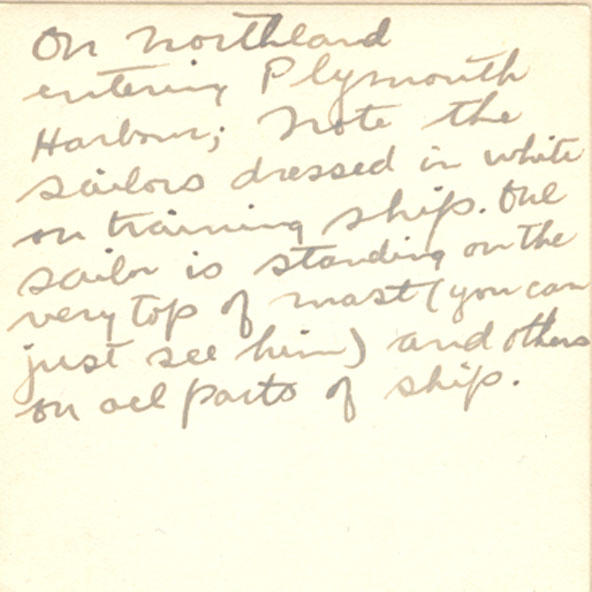 On Northland
entering Plymouth
Harbour; Note the
sailors dressed in white
on training ship. One
sailor is standing on the
very top of mast (you can
just see him) and others
on all parts of ship.